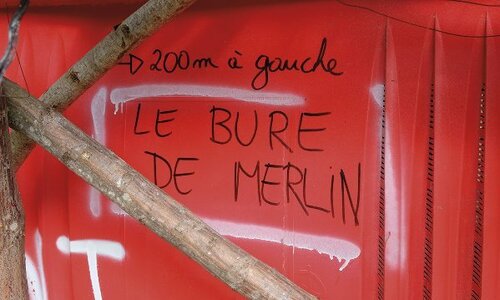 → 200m à gauche
LE BURE
DE MERLIN